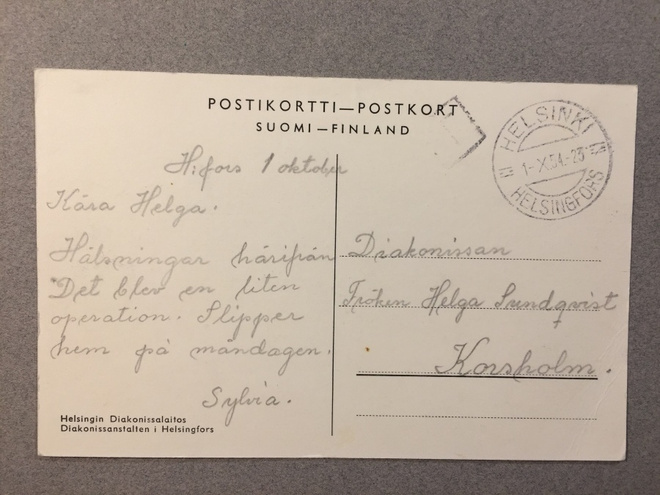 POSTIKORTTI—POSTKORT
SUOMI—FINLAND
HELSINKI
1-X.54.-23
HELSINGFORS
H:fors 1 oktober
Kära Helga.
Hälsningar härifrån
Det blev en liten
operation. Slipper
hem på måndagen.
Sylvia.
Diakonissan
Fröken Helga Sundqvist
Korsholm.
Helsingin Diakonissalaitos
Diakonissanstalten i Helsingfors